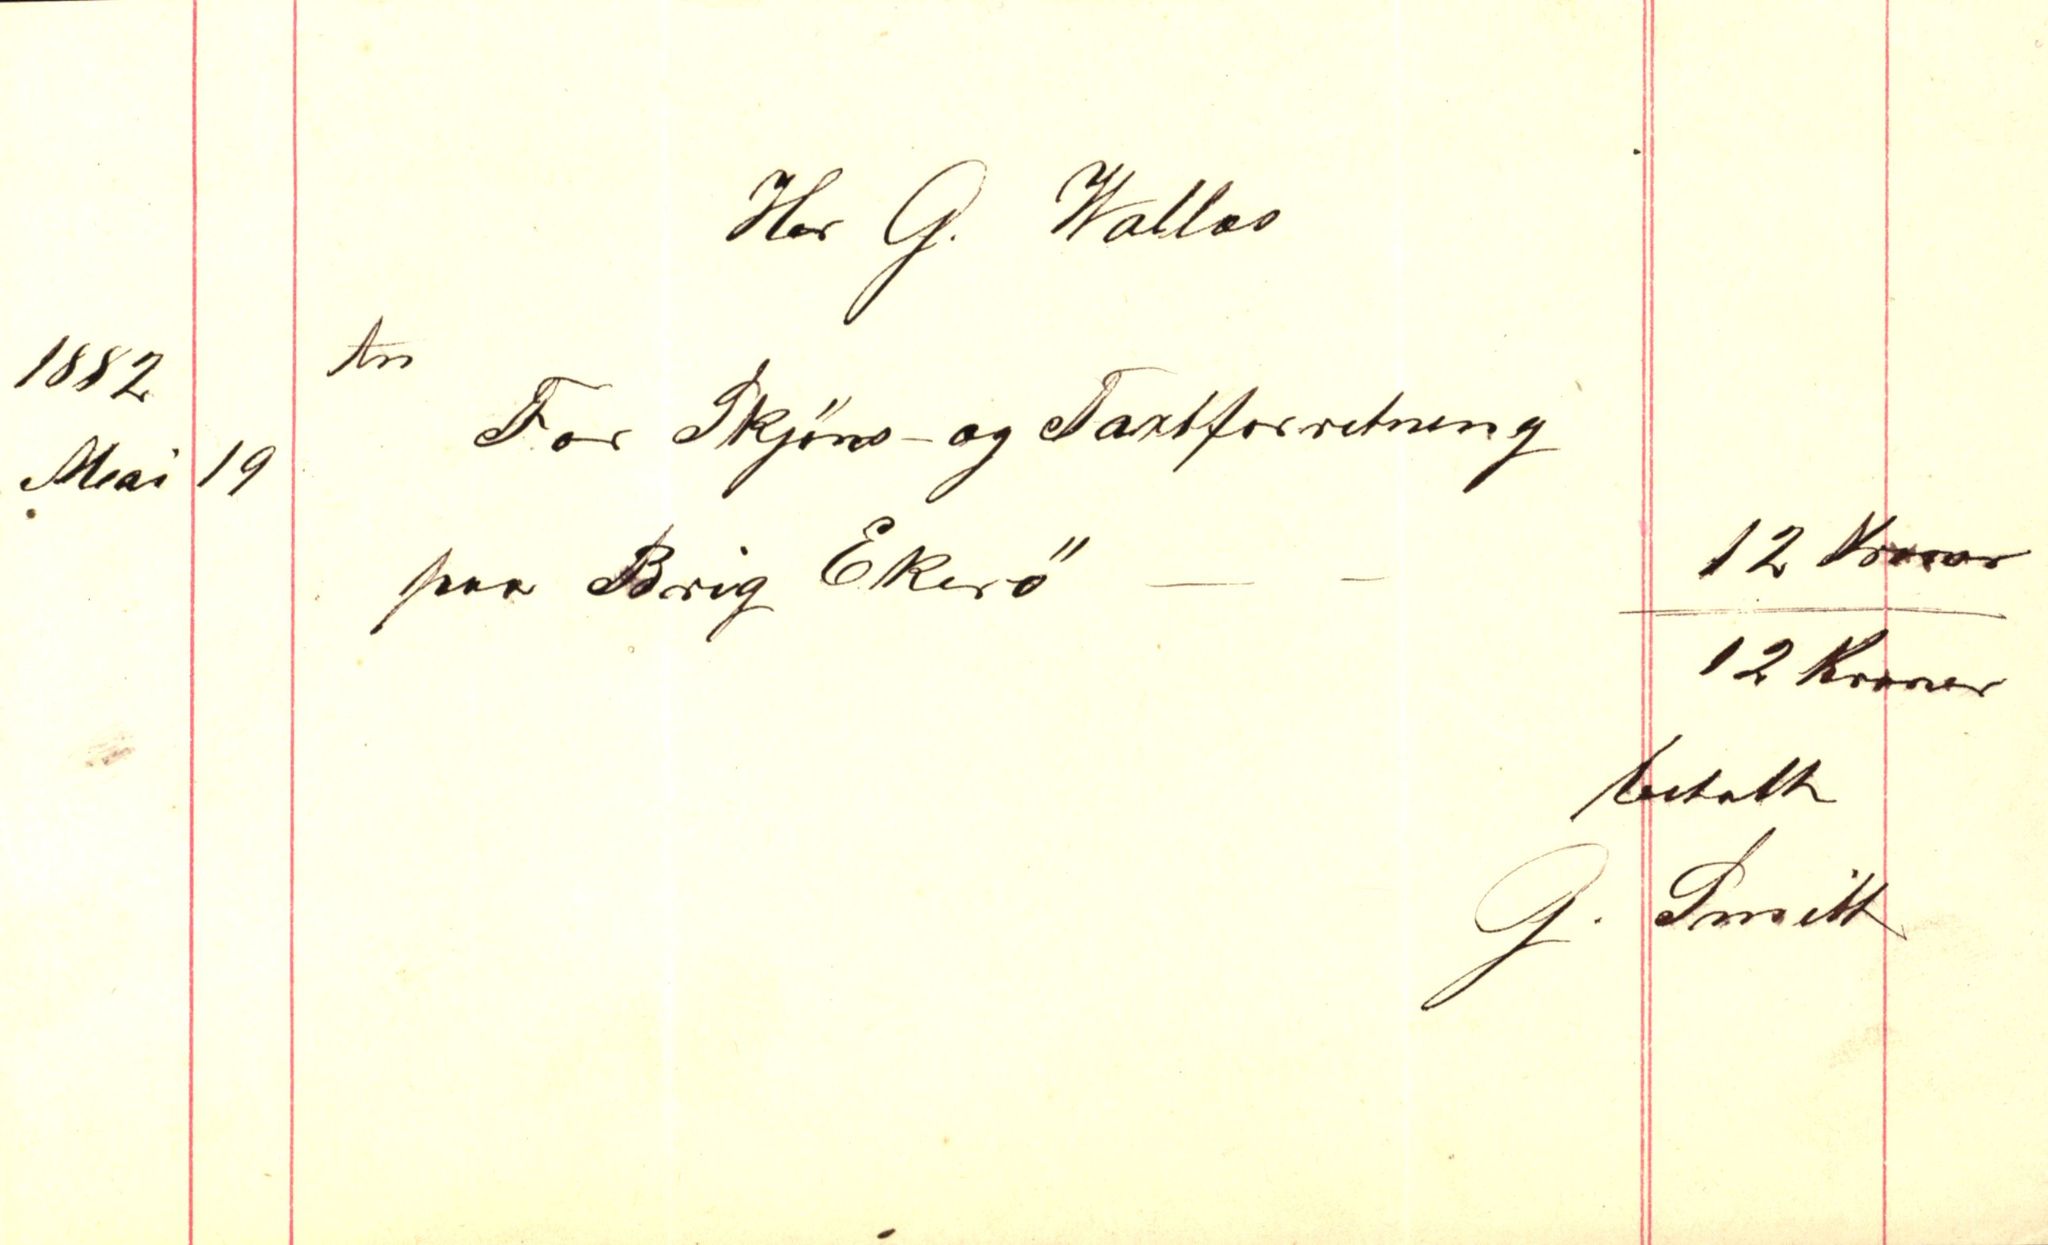 Her G. Wallas
1882
An
Mai 19
For Skjöns- og Taxtforretning
paa Brig Ekerö — -
12 Kroner
12 Kroner
betalt
G. Smitt